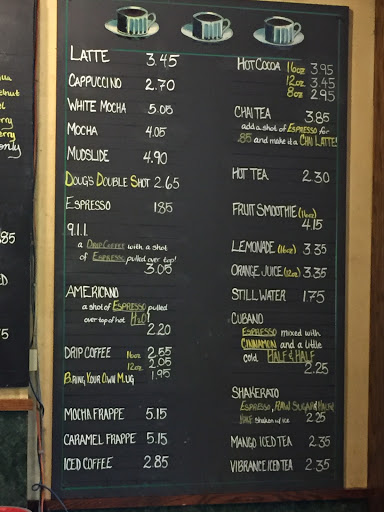 LATTE 3.45
CAPPUCCINO 2.70
WHITE MOCHA 5.05
MOCHA 4.05
MUDSLIDE 4.90
DOUG'S DOUBLE SHOT 2.65
ESPRESSO 1.85
9.1.1.
a DRIP COFFEE with a shot
of ESPRESSO pulled over top!
3.05
AMERICANO
a shot of ESPRESSO pulled
over top of hot H2O!
2.20
DRIP COFFEE 16oz 2.55
12oz 2.05
BRING YOUR OWN MUG 1.95
MOCHA FRAPPE 5.15
CARAMEL FRAPPE 5.15
ICED COFFEE 2.85
HOT COCOA 16oz 3.95
12oz 3.45
8oz 2.95
CHAI TEA 3.85
add a shot of ESPRESSO for
.85 and make it a CHAI LATTE!
HOT TEA 2.30
FRUIT SMOOTHIE (16oz)
4.15
LEMONADE (16oz) 3.35
ORANGE JUICE (12oz) 3.35
STILL WATER 1.75
CUBANO
ESPRESSO mixed with
CINNAMON and a little
cold HALF & HALF
2.25
SHAKERATO
ESPRESSO, RAW SUGAR & HALF &
HALF shaken w/ice 2.25
MANGO ICED TEA 2.35
VIBRANCE ICED TEA 2.35
only